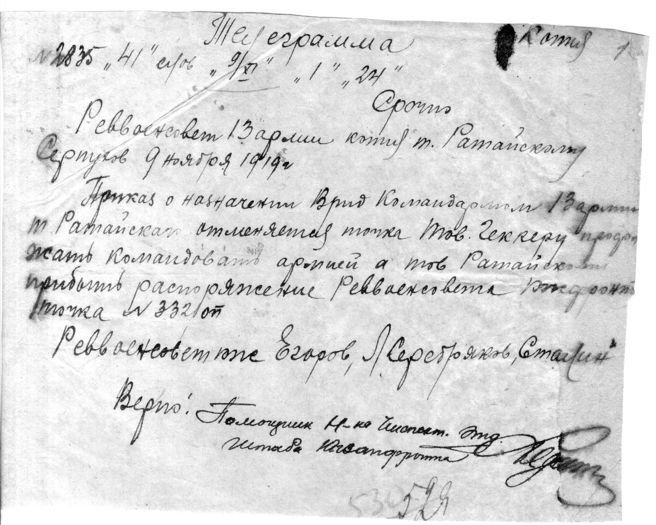 Телеграмма
Копия
1
№2835 „41" слов „9/XI" „1" „24"
Срочно
Реввоенсовет 13 армии копия т. Ратайскому
Серпухов 9 ноября 1919г
Приказ о назначении Врид Командармом 13 армии
т Ратайскаго отменяется точка Тов. Геккеру продол
жать командовать армией а тов Ратайскому
прибыть распоряжение Реввоенсовета Южфронта
точка №332/оп
Реввоенсовет юж Егоров, Л. Серебряков, Сталин"
Верно: Помощник Н-ка Инспект. Отд.
Штаба Югзапфронта
529